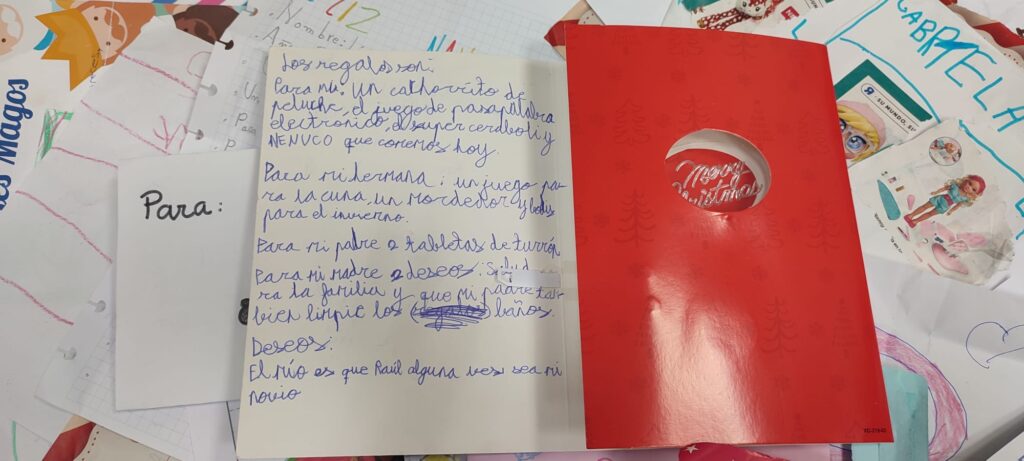 Los regalos son:
Para mí: Un cachorrito de
peluche, el juego de pasapalabra
electrónico, el super cereboli y
NENUCO que comemos hoy.
Para mi hermana: un juego pa-
ra la cuna, un mordedor y bodis
para el invierno.
Para mi padre 2 tabletas de turrón
Para mi madre 2 deseos: Salud pa-
ra la familia y que mi padre tam-
bien limpie los baños.
Deseos:
El mío es que Raúl alguna ves sea mi
novio
Para:
Merry
Christmas
es Magos
LIZ
Nombre:
GABRIELA
SU MUNDO, SU